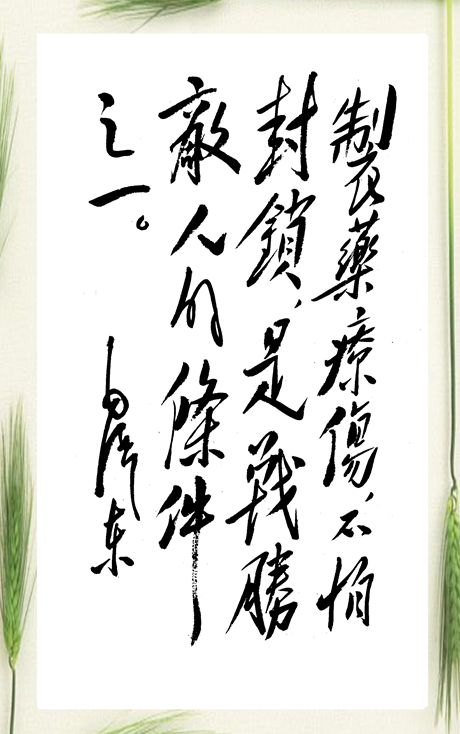 製藥療傷，不怕
封鎖，是戰勝
敵人的條件
之一。
毛澤東